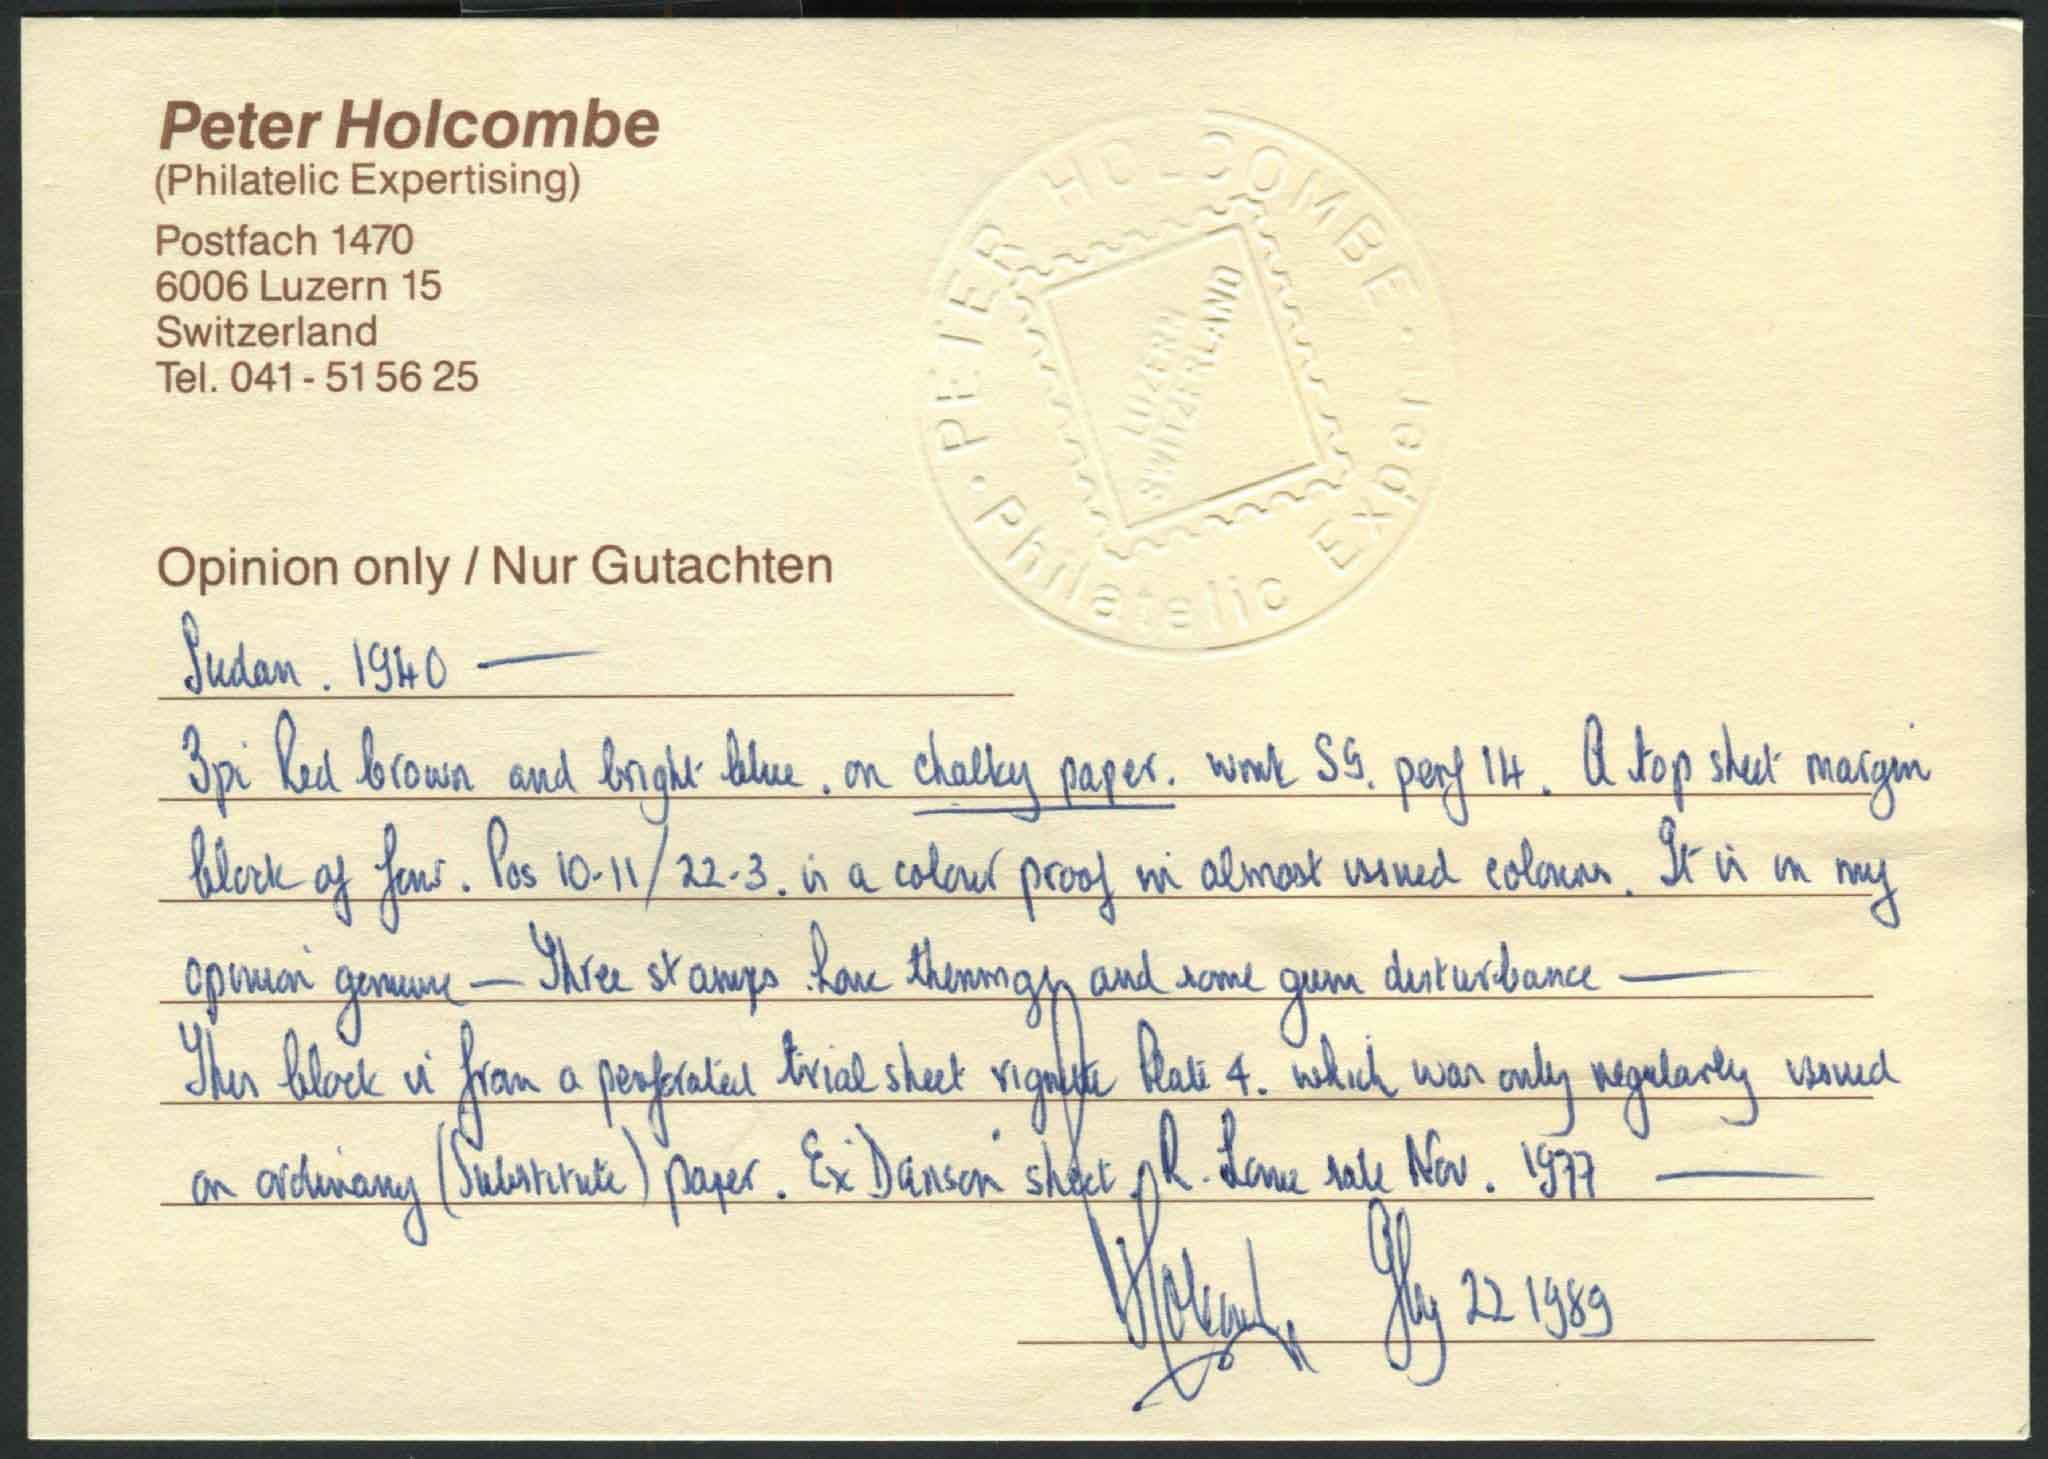 Peter Holcombe
(Philatelic Expertising)
Postfach 1470
6006 Luzern 15
Switzerland
Tel. 041 - 51 56 25
PETER HOLCOMBE · Philatelic Expert ·
LUZERN
SWITZERLAND
Opinion only / Nur Gutachten
Sudan. 1940 —
3pi Red brown and bright blue. on chalky paper. wmk SG. perf 14. A top sheet margin
block of four. Pos 10-11/22-3. is a colour proof in almost issued colours. It is in my
opinion genuine — Three stamps have thinnings and some gum disturbance —
This block is from a perforated trial sheet vignette Plate 4. which was only regularly issued
on ordinary (Substitute) paper. Ex Danson sheet. R. Lowe sale Nov. 1977 —
Holcombe 22 1989